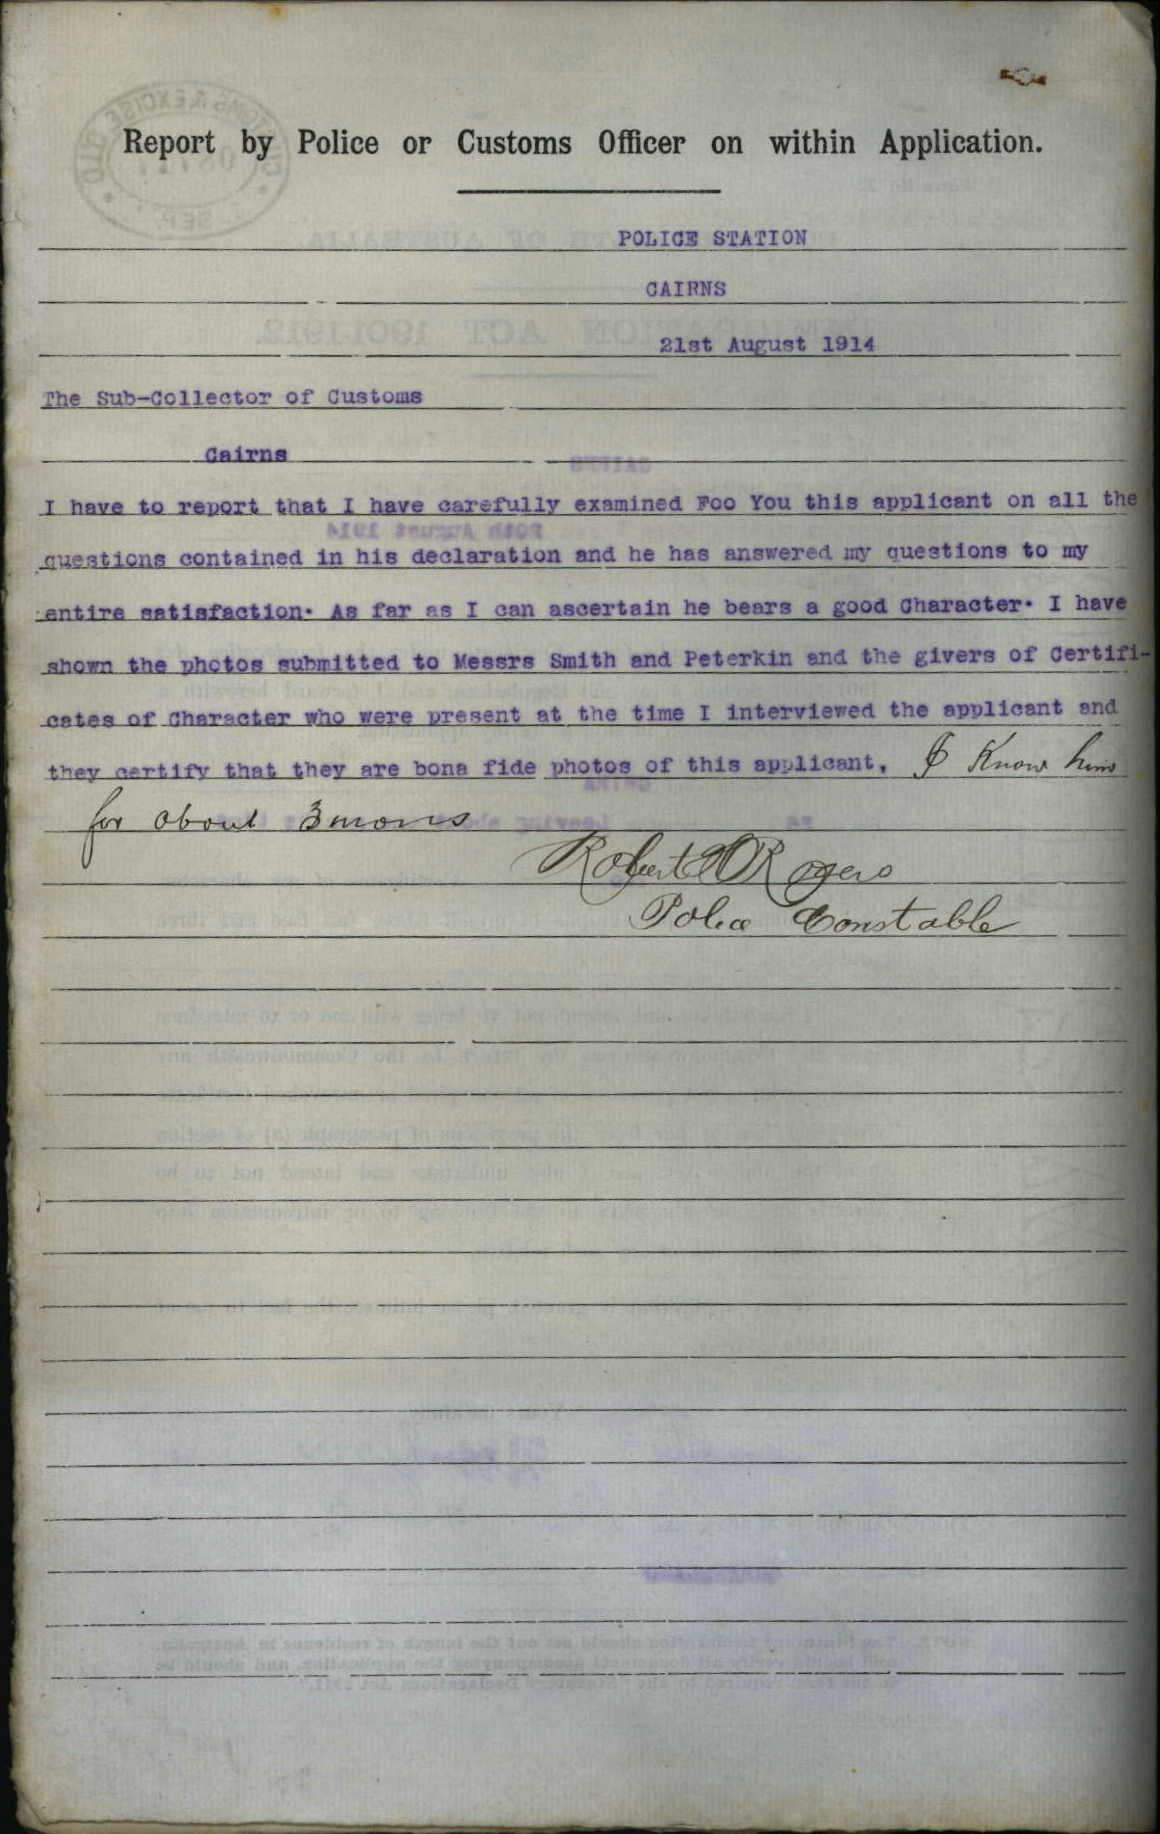 Report by Police or Customs Officer on within Application.
POLICE STATION
CAIRNS
21st August 1914
The Sub-Collector of Customs
Cairns
I have to report that I have carefully examined Foo You this applicant on all the
questions contained in his declaration and he has answered my questions to my
entire satisfaction. As far as I can ascertain he bears a good Character. I have
shown the photos submitted to Messrs Smith and Peterkin and the givers of Certifi-
cates of Character who were present at the time I interviewed the applicant and
they certify that they are bona fide photos of this applicant. I Know him
for about 3 mons
Robert Rogers
Police Constable